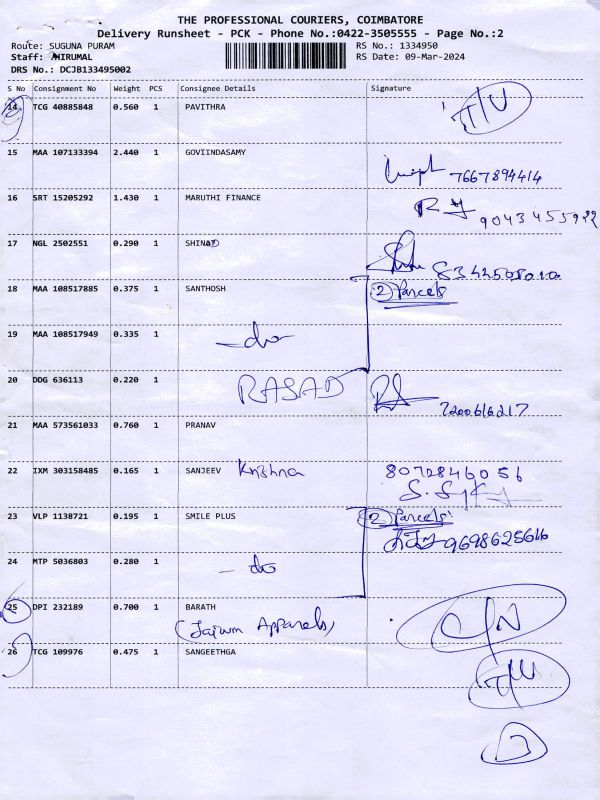 THE PROFESSIONAL COURIERS, COIMBATORE
Delivery Runsheet - PCK - Phone No.:0422-3505555 - Page No.:2
Route: SUGUNA PURAM RS No.: 1334950
Staff: RS Date: 09-Mar-2024
DRS No.: DCJB133495002
S No Consignment No Weight PCS Consignee Details Signature
14 TCG 40885848 0.560 1 PAVITHRA
15 MAA 107133394 2.440 1 GOVIINDASAMY
7667894414
16 SRT 15205292 1.430 1 MARUTHI FINANCE
9043455922
17 NGL 2502551 0.290 1 SHINAD
18 MAA 108517885 0.375 1 SANTHOSH 2 Parcels
19 MAA 108517949 0.335 1 -do-
20 DDG 636113 0.220 1 RASAD
7200616217
21 MAA 573561033 0.760 1 PRANAV
22 IXM 303158485 0.165 1 SANJEEV Krishna 8072846056
23 VLP 1138721 0.195 1 SMILE PLUS 2 Parcels
9698625616
24 MTP 5036803 0.280 1 - do
25 DPI 232189 0.700 1 BARATH
Apparels)
26 TCG 109976 0.475 1 SANGEETHGA